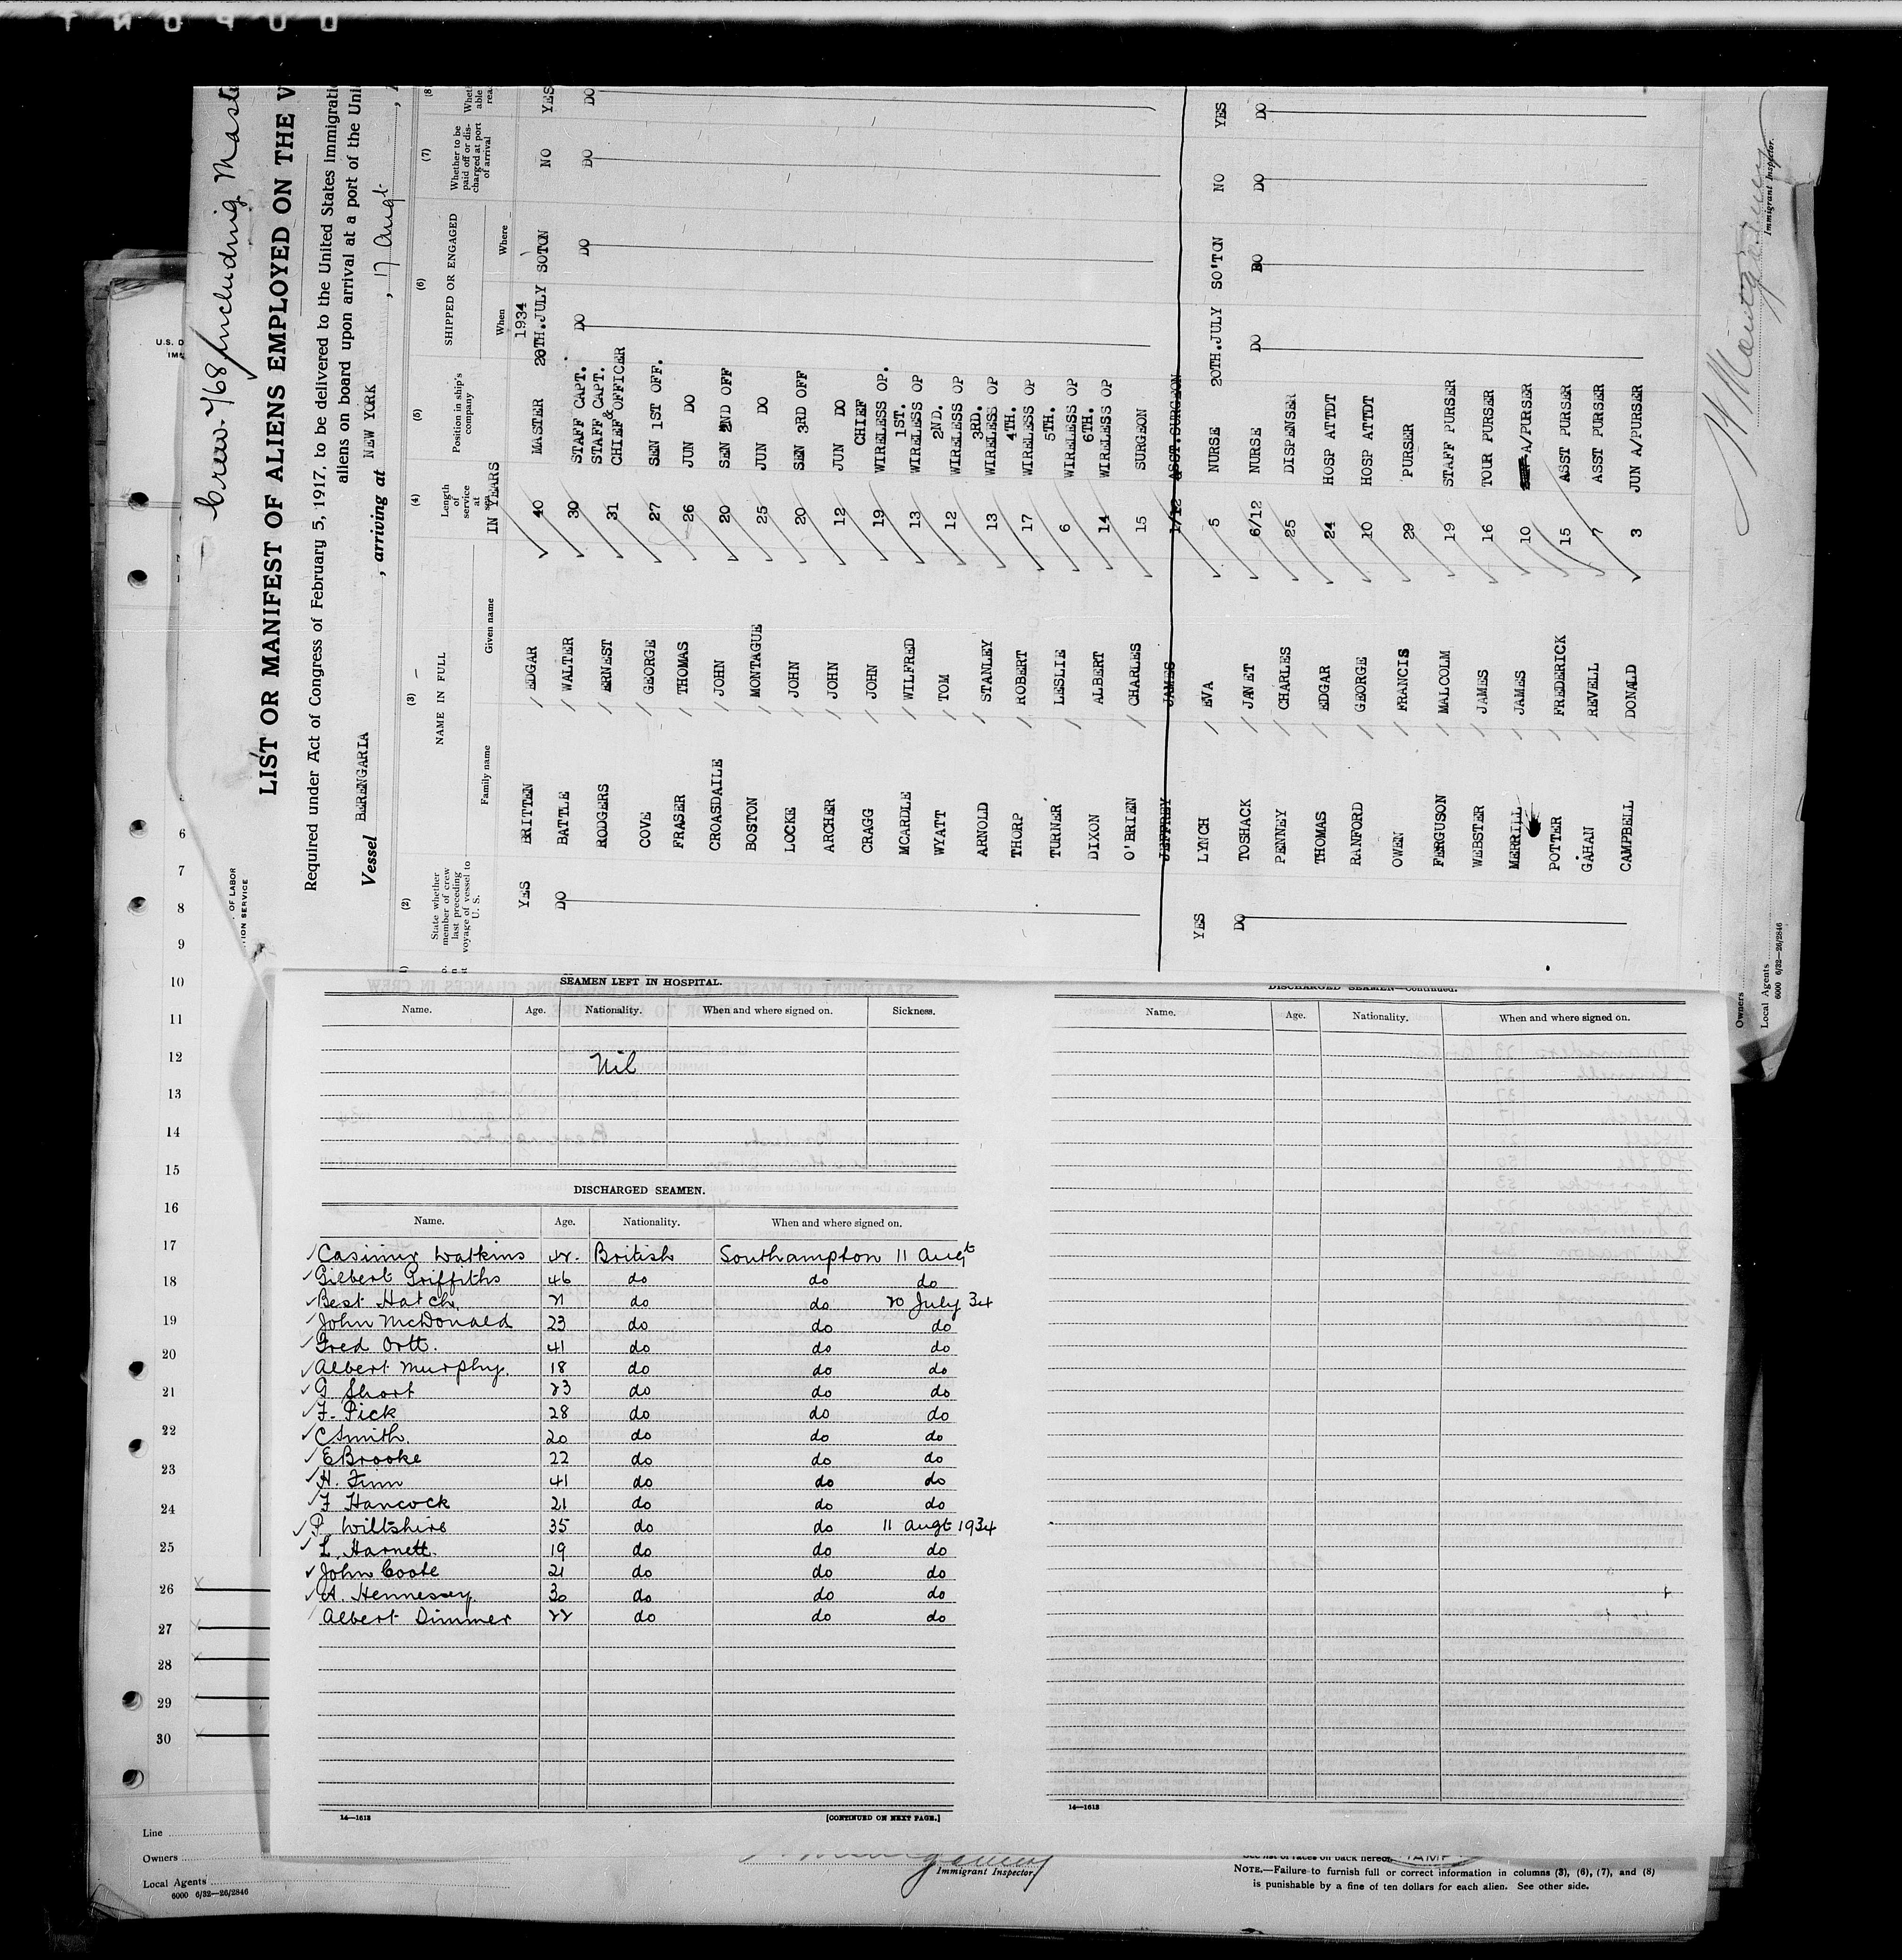 Crew. 768 including Maste
LIST OR MANIFEST OF ALIENS EMPLOYED ON THE V
Required under Act of Congress of February 5, 1917, to be delivered to the United States Immigrati
aliens on board upon arrival at a port of the Uni
Vessel BERENGARIA, arriving at NEW YORK, 17 Augt
(2) (3) (4) (5) (6) (7) (8
State whether member of crew last preceding voyage of vessel to U. S.
NAME IN FULL
Family name Given name
Length of service at sea
IN YEARS
Position in ship's company
SHIPPED OR ENGAGED
When Where
Whether to be paid off or discharged at port of arrival
1934
YES BRITTEN EDGAR 40 MASTER 20TH.JULY SOTON NO YES
DO BATTLE WALTER 30 STAFF CAPT. DO DO DO DO
RODGERS ERNEST 31 STAFF CAPT. & CHIEF OFFICER
COVE GEORGE 27 SEN 1ST OFF.
FRASER THOMAS 26 JUN DO
CROASDAILE JOHN 20 SEN 2ND OFF
BOSTON MONTAGUE 25 JUN DO
LOCKE JOHN 20 SEN 3RD OFF
ARCHER JOHN 12 JUN DO
CRAGG JOHN 19 CHIEF WIRELESS OP.
MCARDLE WILFRED 13 1ST. WIRELESS OP
WYATT TOM 12 2ND. WIRELESS OP
ARNOLD STANLEY 13 3RD. WIRELESS OP
THORP ROBERT 17 4TH. WIRELESS OP
TURNER LESLIE 6 5TH. WIRELESS OP
DIXON ALBERT 14 6TH. WIRELESS OP
O'BRIEN CHARLES 15 SURGEON
JEFFREY JAMES 1/12 ASST.SURGEON
YES LYNCH EVA 5 NURSE 20TH.JULY SO'TON NO YES
DO TOSHACK JANET 6/12 NURSE DO DO DO DO
PENNEY CHARLES 25 DISPENSER
THOMAS EDGAR 24 HOSP ATTDT
RANFORD GEORGE 10 HOSP ATTDT
OWEN FRANCIS 29 PURSER
FERGUSON MALCOLM 19 STAFF PURSER
WEBSTER JAMES 16 TOUR PURSER
MERRILL JAMES 10 A/PURSER
POTTER FREDERICK 15 ASST PURSER
GAHAN REVELL 7 ASST PURSER
CAMPBELL DONALD 3 JUN A/PURSER
Immigrant Inspector.
Owners
Local Agents
6000 6/32—26/2846
U.S. D
OF LABOR
TION SERVICE
6
7
8
9
10
11
12
13
14
15
16
17
18
19
20
21
22
23
24
25
26
27
28
29
30
SEAMEN LEFT IN HOSPITAL.
Name. Age. Nationality. When and where signed on. Sickness.
Nil
DISCHARGED SEAMEN.
Name. Age. Nationality. When and where signed on.
Casimir Watkins 42. British Southampton 11 Augt
Gilbert Griffiths 46 do do do
Best Hatch. 21 do do 20 July 34
John McDonald 23 do do do
Fred Ortt. 41 do do do
Albert Murphy. 18 do do do
G Short 23 do do do
F. Pick 28 do do do
C Smith. 20 do do do
E Brooke 22 do do do
H. Finn 41 do do do
F Hancock 21 do do do
P. Wiltshire 35 do do 11 Augt 1934
L. Harnett. 19 do do do
John Coote 21 do do do
A. Hennessey. 30 do do do
Albert Dimmer 22 do do do
14—1613 [CONTINUED ON NEXT PAGE.]
DISCHARGED SEAMEN—Continued.
Name. Age. Nationality. When and where signed on.
14—1613
Line
Owners
Local Agents
6000 6/32—26/2846
Immigrant Inspector.
See list of races on back hereof.
NOTE.—Failure to furnish full or correct information in columns (3), (6), (7), and (8)
is punishable by a fine of ten dollars for each alien. See other side.